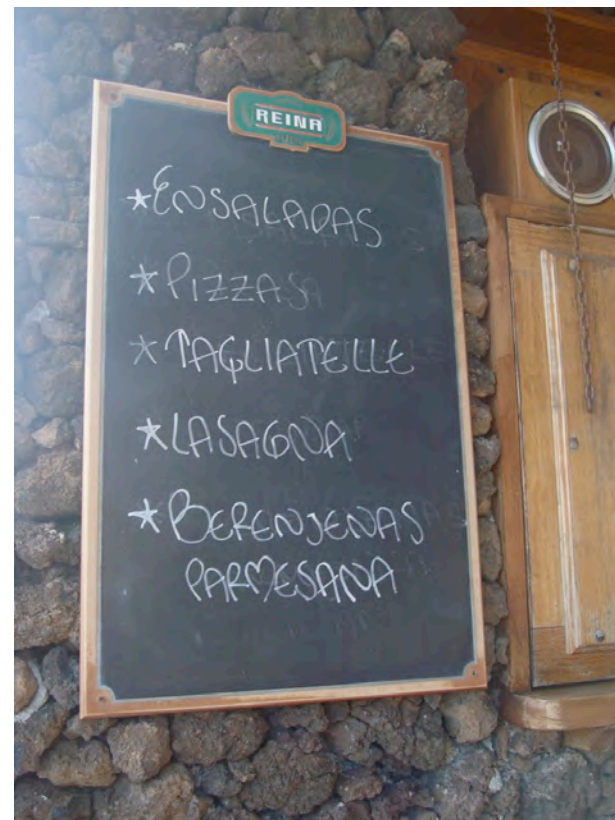 REINA
*ENSALADAS
*PIZZAS
*TAGLIATELLE
*LASAGNA
*BERENJENAS
PARMESANA